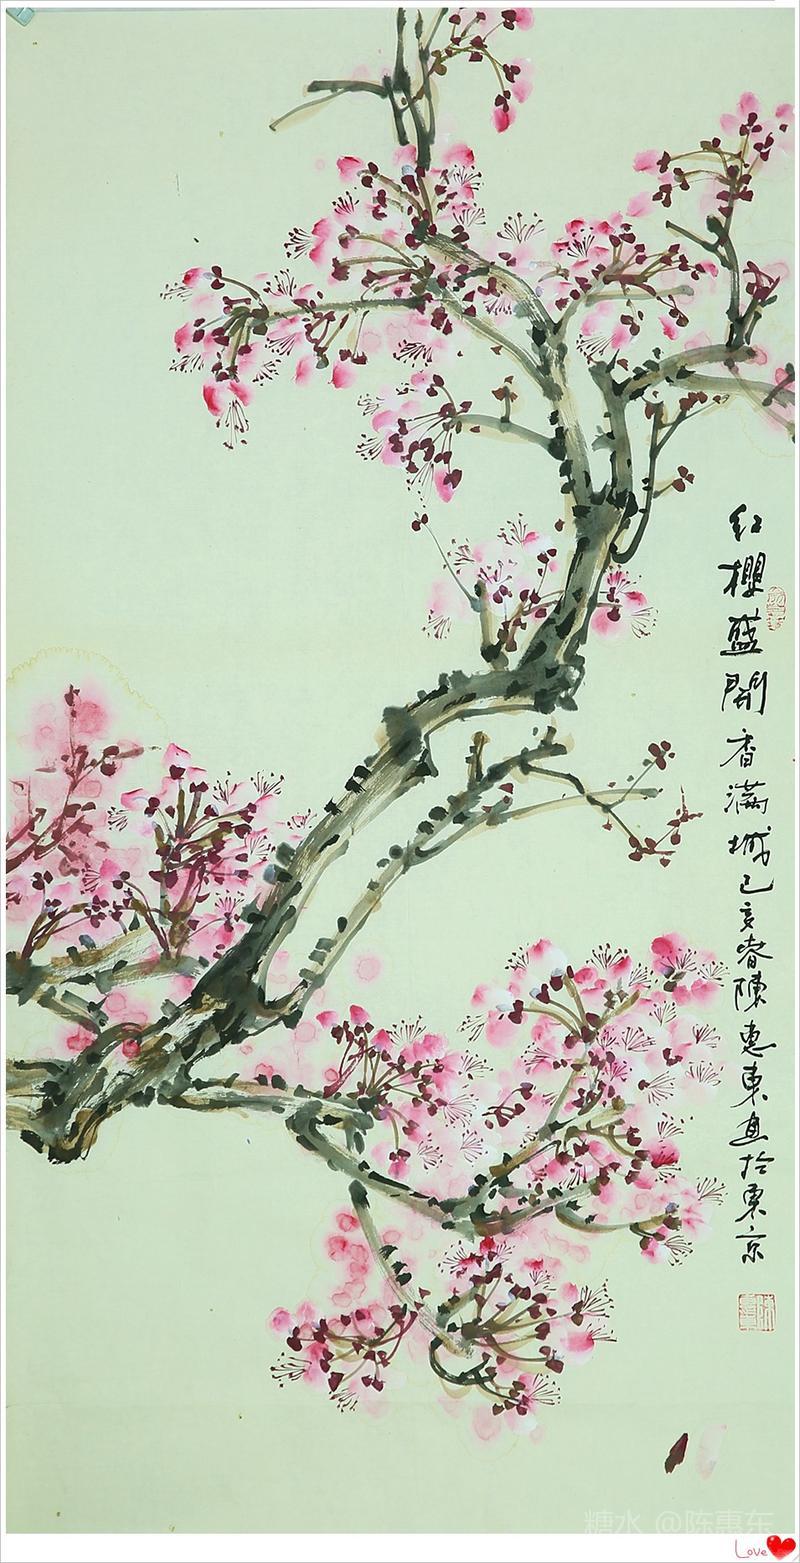 红樱盛開香滿城己亥春陳惠東画於東京
糖水 @陈惠东
Love